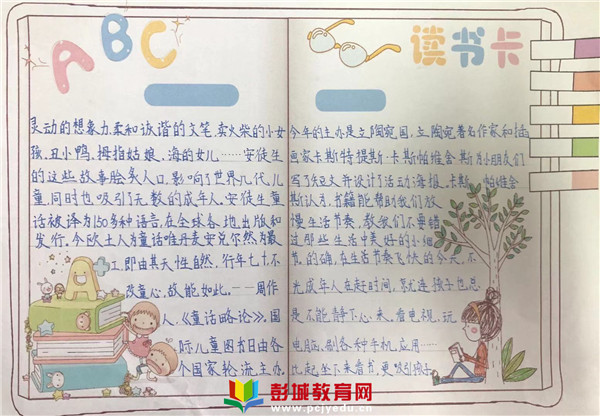 ABC
读书卡
灵动的想象力,柔和诙谐的文笔,卖火柴的小女
孩,丑小鸭,拇指姑娘,海的女儿……安徒生
的这些故事脍炙人口,影响了世界几代儿
童,同时也吸引了无数的成年人,安徒生童
话被译为150多种语言,在全球各地出版和
发行。今欧土人为童话唯丹麦安克尔然为最
工,即由其天性自然,行年七十,不
改童心,故能如此,——周作
人,《童话略论》,国
际儿童图书日由各
个国家轮流主办
今年的主办是立陶宛国,立陶宛著名作家和插
画家卡斯特提斯·卡斯帕维舍斯为小朋友们
写了短文并设计了活动海报,卡斯帕维舍
斯认为,书籍能帮助我们放
慢生活节奏,教我们不要错
过那些生活中美好的小细
节的确,在生活节奏飞快的今天,不
光成年人在赶时间,就连孩子也总
是不能静下心来,看电视,玩
电脑,刷各种手机应用……
比起坐下来看书,更吸引孩子
A
彭城教育网
www.pcjyedu.cn